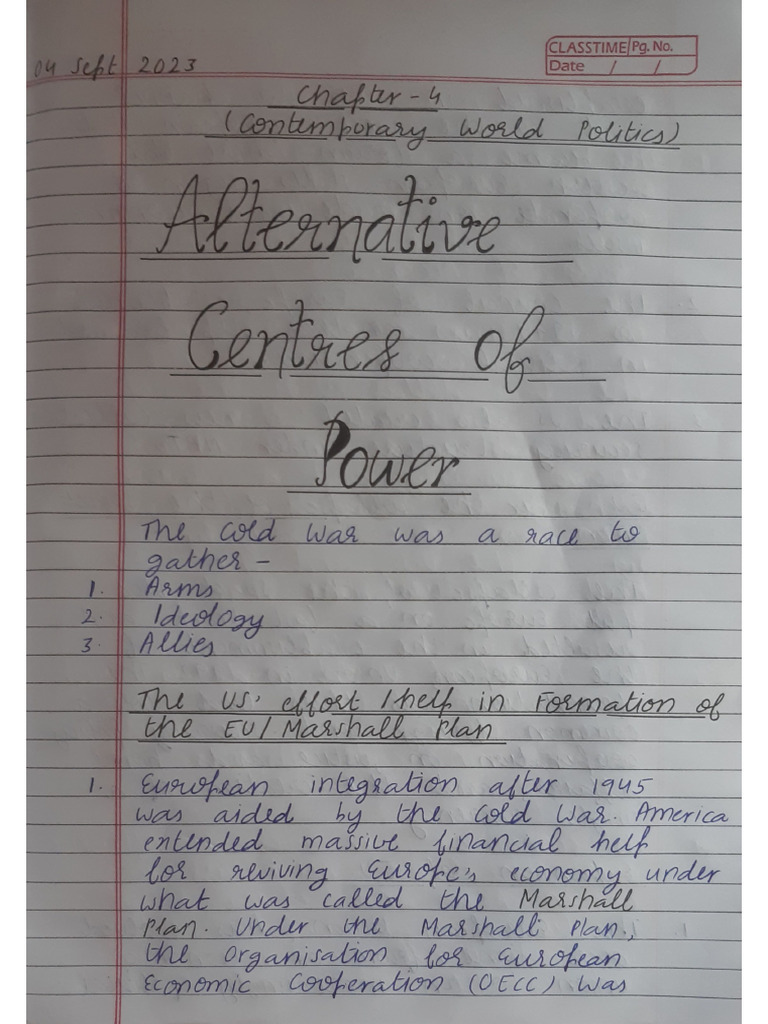 04 Sept 2023
CLASSTIME Pg. No.
Date / /
Chapter - 4
(Contemporary World Politics)
Alternative
Centres of
Power
The Cold War was a race to
gather -
1. Arms
2. Ideology
3. Allies
The US' effort / help in Formation of
the EU / Marshall Plan
1. European integration after 1945
was aided by the Cold War. America
extended massive financial help
for reviving Europe's economy under
what was called the Marshall
Plan. Under the Marshall Plan,
the Organisation for European
Economic Cooperation (OEEC) was